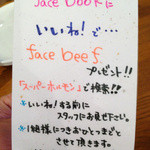 face bookに
いいね!で…
face beef
プレゼント!!
「スーパーホルモン」で検索!!
※いいね!する前に
スタッフにお見せ下さい。
※1組様につきおひとつまで
とさせて頂きます。